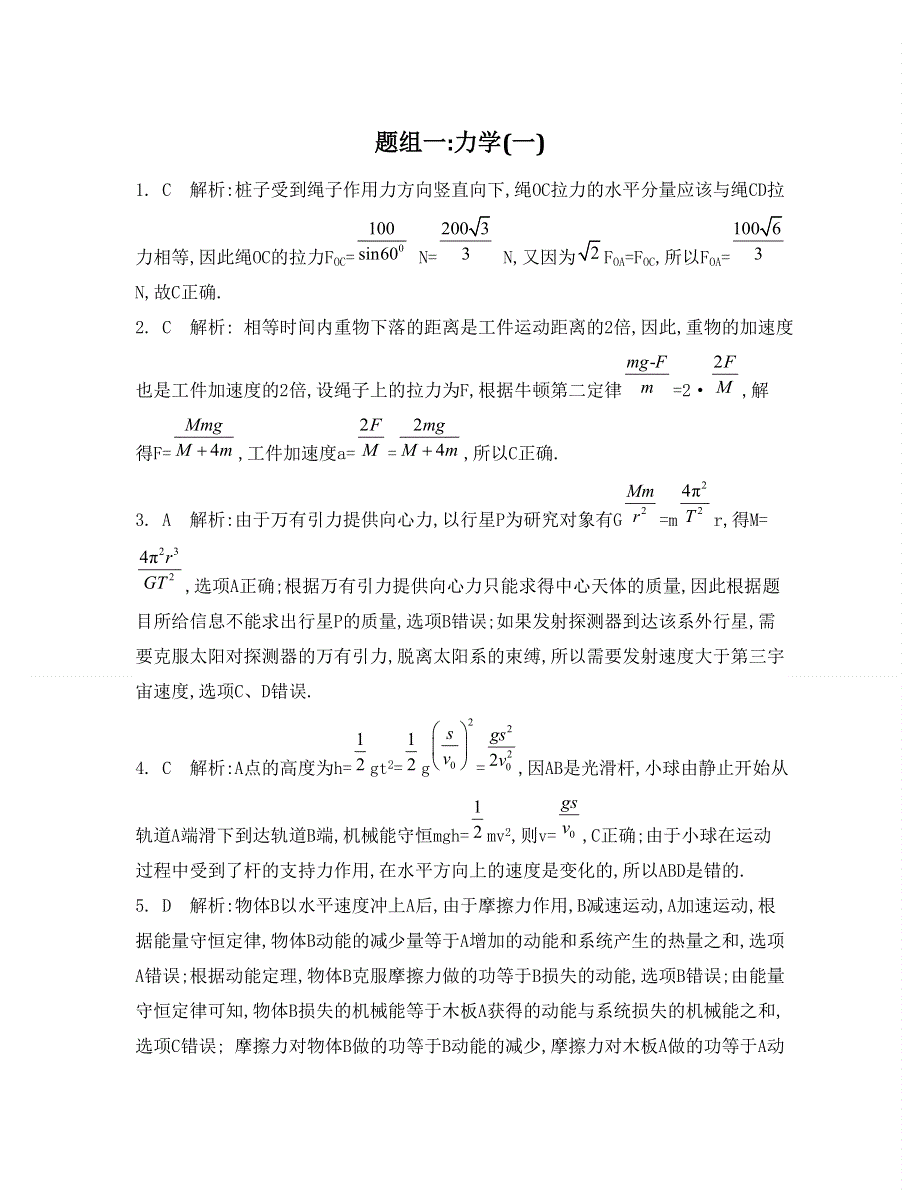 题组一:力学(一)
1. C 解析:桩子受到绳子作用力方向竖直向下,绳OC拉力的水平分量应该与绳CD拉
力相等,因此绳OC的拉力F_OC=100/sin60⁰ N=200√3/3 N,又因为√2F_OA=F_OC,所以F_OA=100√6/3
N,故C正确.
2. C 解析: 相等时间内重物下落的距离是工件运动距离的2倍,因此,重物的加速度
也是工件加速度的2倍,设绳子上的拉力为F,根据牛顿第二定律(mg-F)/m=2·2F/M,解
得F=Mmg/(M+4m),工件加速度a=2F/M=2mg/(M+4m),所以C正确.
3. A 解析:由于万有引力提供向心力,以行星P为研究对象有G Mm/r²=m 4π²/T² r,得M=
4π²r³/GT²,选项A正确;根据万有引力提供向心力只能求得中心天体的质量,因此根据题
目所给信息不能求出行星P的质量,选项B错误;如果发射探测器到达该系外行星,需
要克服太阳对探测器的万有引力,脱离太阳系的束缚,所以需要发射速度大于第三宇
宙速度,选项C、D错误.
4. C 解析:A点的高度为h=1/2 gt²=1/2 g(s/v₀)²=gs²/2v₀²,因AB是光滑杆,小球由静止开始从
轨道A端滑下到达轨道B端,机械能守恒mgh=1/2 mv²,则v=gs/v₀,C正确;由于小球在运动
过程中受到了杆的支持力作用,在水平方向上的速度是变化的,所以ABD是错的.
5. D 解析:物体B以水平速度冲上A后,由于摩擦力作用,B减速运动,A加速运动,根
据能量守恒定律,物体B动能的减少量等于A增加的动能和系统产生的热量之和,选项
A错误;根据动能定理,物体B克服摩擦力做的功等于B损失的动能,选项B错误;由能量
守恒定律可知,物体B损失的机械能等于木板A获得的动能与系统损失的机械能之和,
选项C错误; 摩擦力对物体B做的功等于B动能的减少,摩擦力对木板A做的功等于A动